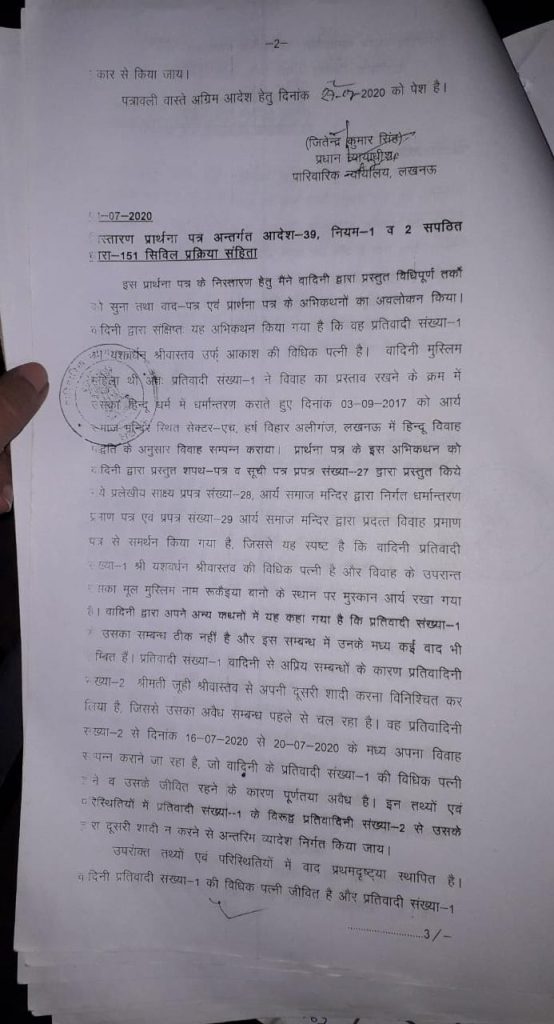 –2–
कार से किया जाय।
पत्रावली वास्ते अग्रिम आदेश हेतु दिनांक 2020 को पेश है।
(जितेन्द्र कुमार सिंह)
प्रधान न्यायाधीश
पारिवारिक न्यायालय, लखनऊ
-07-2020
स्तारण प्रार्थना पत्र अन्तर्गत आदेश–39, नियम–1 व 2 सपठित
ारा–151 सिविल प्रक्रिया संहिता
इस प्रार्थना पत्र के निस्तारण हेतु मैंने वादिनी द्वारा प्रस्तुत विधिपूर्ण तर्को
को सुना तथा वाद–पत्र एवं प्रार्थना पत्र के अभिकथनों का अवलोकन किया।
वादिनी द्वारा संक्षिप्तः यह अभिकथन किया गया है कि वह प्रतिवादी संख्या–1
श्री यशवर्धन श्रीवास्तव उर्फ आकाश की विधिक पत्नी है। वादिनी मुस्लिम
महिला थी अतः प्रतिवादी संख्या–1 ने विवाह का प्रस्ताव रखने के क्रम में
उसका हिन्दू धर्म में धर्मान्तरण कराते हुए दिनांक 03-09-2017 को आर्य
समाज मन्दिर स्थित सेक्टर–एच, हर्ष विहार अलीगंज, लखनऊ में हिन्दू विवाह
पद्धति के अनुसार विवाह सम्पन्न कराया। प्रार्थना पत्र के इस अभिकथन को
वादिनी द्वारा प्रस्तुत शपथ–पत्र व सूची पत्र प्रपत्र संख्या–27 द्वारा प्रस्तुत किये
गये प्रलेखीय साक्ष्य प्रपत्र संख्या–28, आर्य समाज मन्दिर द्वारा निर्गत धर्मान्तरण
प्रमाण पत्र एवं प्रपत्र संख्या–29 आर्य समाज मन्दिर द्वारा प्रदत्त विवाह प्रमाण
पत्र से समर्थन किया गया है, जिससे यह स्पष्ट है कि वादिनी प्रतिवादी
संख्या–1 श्री यशवर्धन श्रीवास्तव की विधिक पत्नी है और विवाह के उपरान्त
उसका मूल मुस्लिम नाम रूकैइया बानो के स्थान पर मुस्कान आर्य रखा गया
है। वादिनी द्वारा अपने अन्य कथनों में यह कहा गया है कि प्रतिवादी संख्या–1
से उसका सम्बन्ध ठीक नहीं है और इस सम्बन्ध में उनके मध्य कई वाद भी
म्बित हैं। प्रतिवादी संख्या–1 वादिनी से अप्रिय सम्बन्धों के कारण प्रतिवादिनी
संख्या–2 श्रीमती जूही श्रीवास्तव से अपनी दूसरी शादी करना विनिश्चित कर
लिया है, जिससे उसका अवैध सम्बन्ध पहले से चल रहा है। वह प्रतिवादिनी
संख्या–2 से दिनांक 16-07-2020 से 20-07-2020 के मध्य अपना विवाह
सम्पन्न कराने जा रहा है, जो वादिनी के प्रतिवादी संख्या–1 की विधिक पत्नी
होने व उसके जीवित रहने के कारण पूर्णतया अवैध है। इन तथ्यों एवं
परिस्थितियों में प्रतिवादी संख्या–1 के विरूद्व प्रतिवादिनी संख्या–2 से उसके
द्वारा दूसरी शादी न करने से अन्तरिम व्यादेश निर्गत किया जाय।
उपरोक्त तथ्यों एवं परिस्थितियों में वाद प्रथमदृष्ट्या स्थापित है।
वादिनी प्रतिवादी संख्या–1 की विधिक पत्नी जीवित है और प्रतिवादी संख्या–1
..................3/-